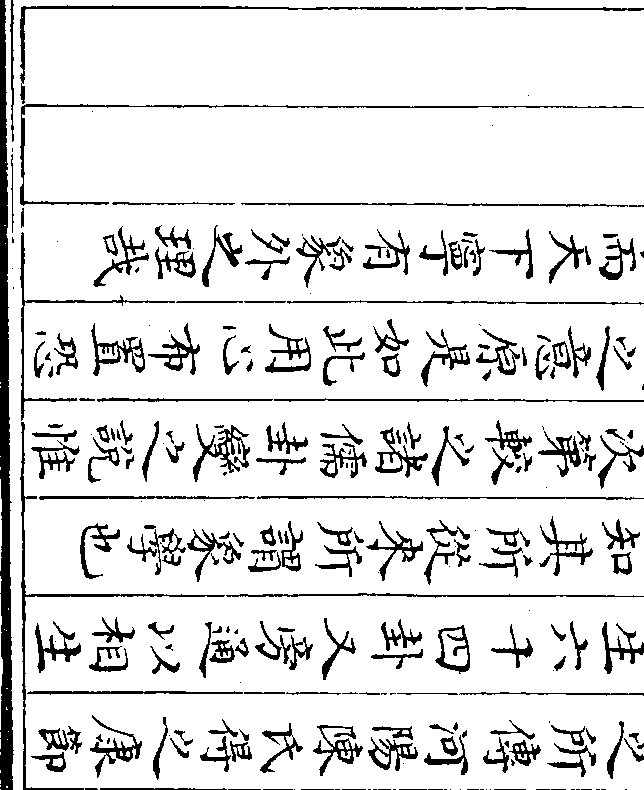 之所傳河陽陳氏得之康節
生六十四卦又旁通以相生
知其所從来所謂象學也
次第較之諸儒卦變之說惟
之意原是如此用心布置恐
而天下寧有象外之理哉